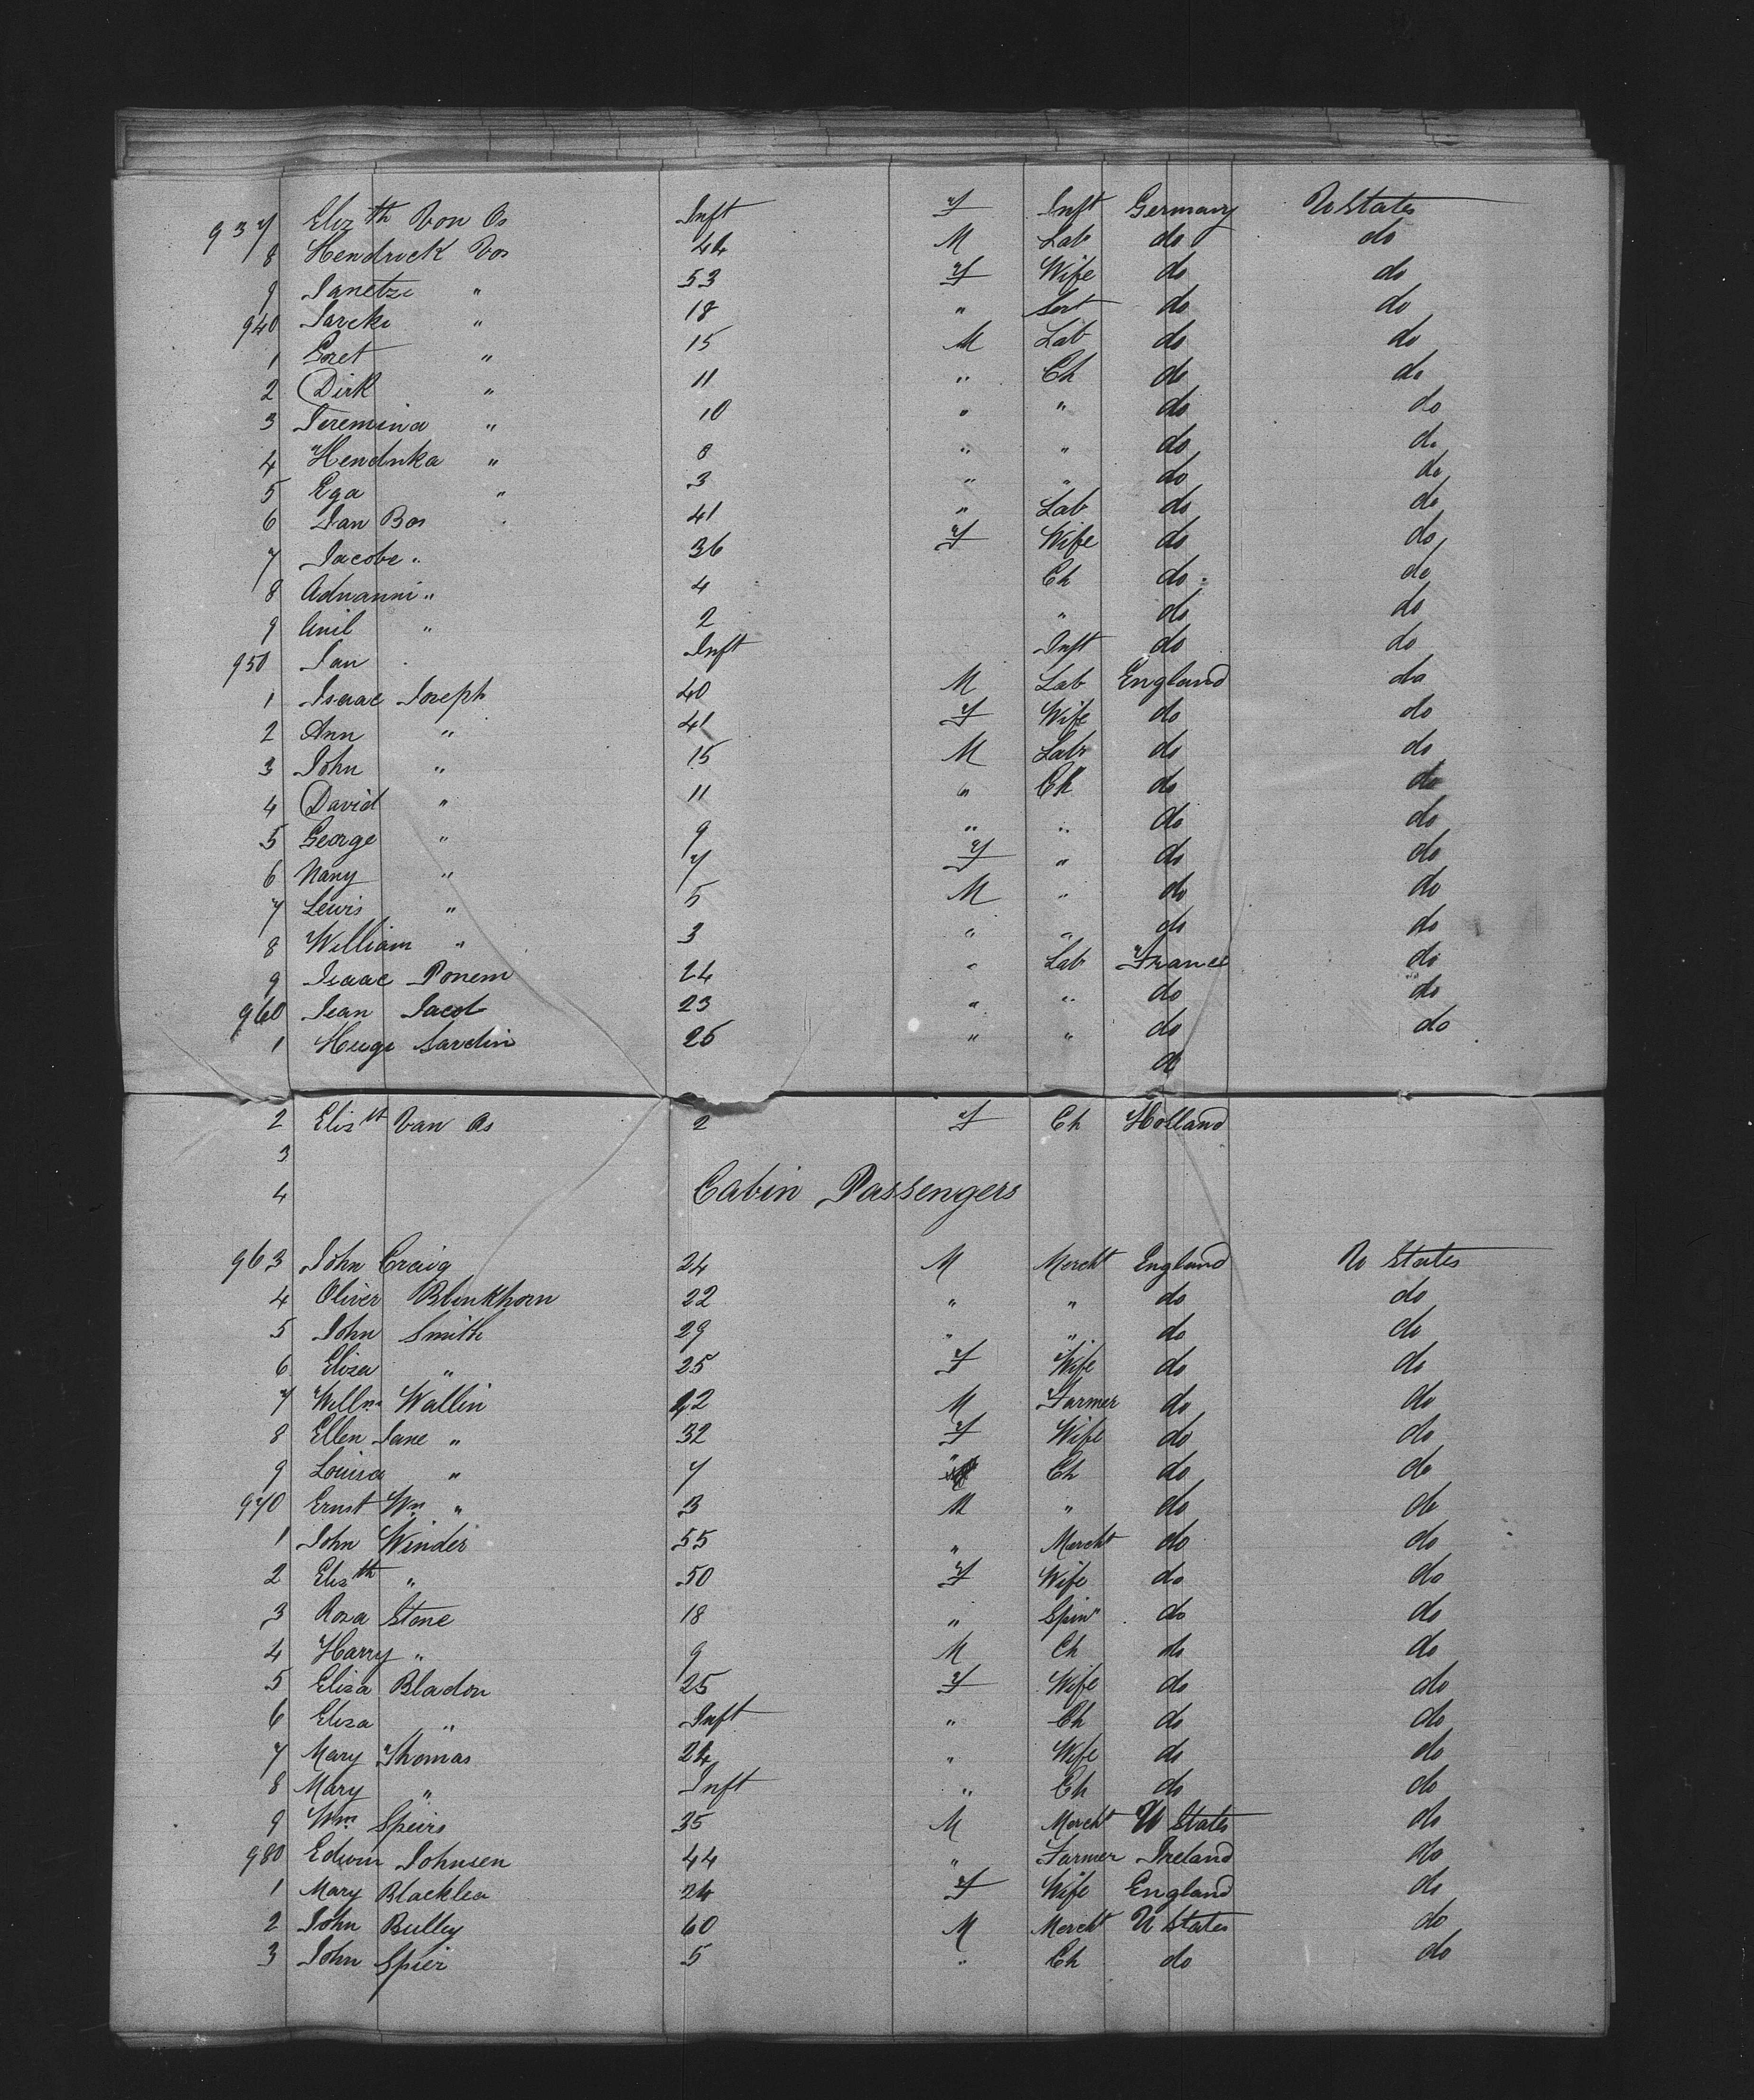 937 Eliz th Von Os Inft F Inft Germany U States
8 Hendrick Vos 44 M Lab do do
9 Janetze " 53 F Wife do do
940 Jarcke " 18 " Sert do do
1 Gret " 15 M Lab do do
2 Dirk " 11 " Ch do do
3 Jeremina " 10 " " do do
4 Hendrika " 8 " " do do
5 Ega " 3 " " do do
6 Jan Bos 41 " Lab do do
7 Jacobe " 36 F Wife do do
8 Adrianni " 4 Ch do do
9 Anil " 2 " do do
950 Jan Inft Inft do do
1 Isaac Joseph 40 M Lab England do
2 Ann " 41 F Wife do do
3 John " 15 M Labr do do
4 David " 11 " Ch do do
5 George " 9 " " do do
6 Nany " 7 F " do do
7 Lewis " 5 M " do do
8 William " 3 " " do do
9 Isaac Ponem 24 " Lab France do
960 Jean Jacob 23 " " do do
1 Hugo Sardin 25 " " do do
do
2 Elis th Van Os 2 F Ch Holland
3
4 Cabin Passengers
963 John Craig 24 M Mercht England U States
4 Oliver Blenkhorn 22 " " do do
5 John Smith 29 " " do do
6 Eliza " 25 F Wife do do
7 Willm Wallin 42 M Farmer do do
8 Ellen Jane " 32 F Wife do do
9 Louisa " 7 " Ch do do
970 Ernst Wm " 3 M " do do
1 John Winder 55 " Mercht do do
2 Eliz th " 50 F Wife do do
3 Rosa Stone 18 " Spinr do do
4 Harry " 9 M Ch do do
5 Eliza Bladon 25 F Wife do do
6 Eliza " Inft " Ch do do
7 Mary Thomas 24 " Wife do do
8 Mary " Inft " Ch do do
9 Wm Speirs 35 M Mercht U States do
980 Edwin Johnsen 44 " Farmer Ireland do
1 Mary Blacklea 24 F Wife England do
2 John Bulley 60 M Mercht U States do
3 John Spier 5 " Ch do do